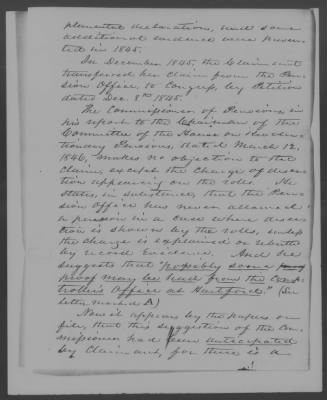 plemental declaration, and some
additional evidence were presen-
ted in 1845.
In December 1845, the Claimant
transferred her claim from the Pen-
sion Office, to Congress, by Petition
dated Dec. 8th 1845.
The Commissioner of Pensions, in
his report to the Chairman of the
Committee of the House on Revolu-
tionary Pensions, dated March 12,
1846, makes no objection to the
claim, except the charge of deser-
tion appearing on the rolls. He
states, in substance, that the Pen-
sion Office has never allowed
a pension in a case where deser-
tion is shown by the rolls, unless
the charge is explained or rebutted
by record evidence. And he
suggests that "possibly some proof
proof may be had from the Comp-
troller's Office at Hartford." (See
letter marked A)
Now it appears by the papers on
file, that this suggestion of the Com-
missioner had been anticipated
by Claimant, for there is a